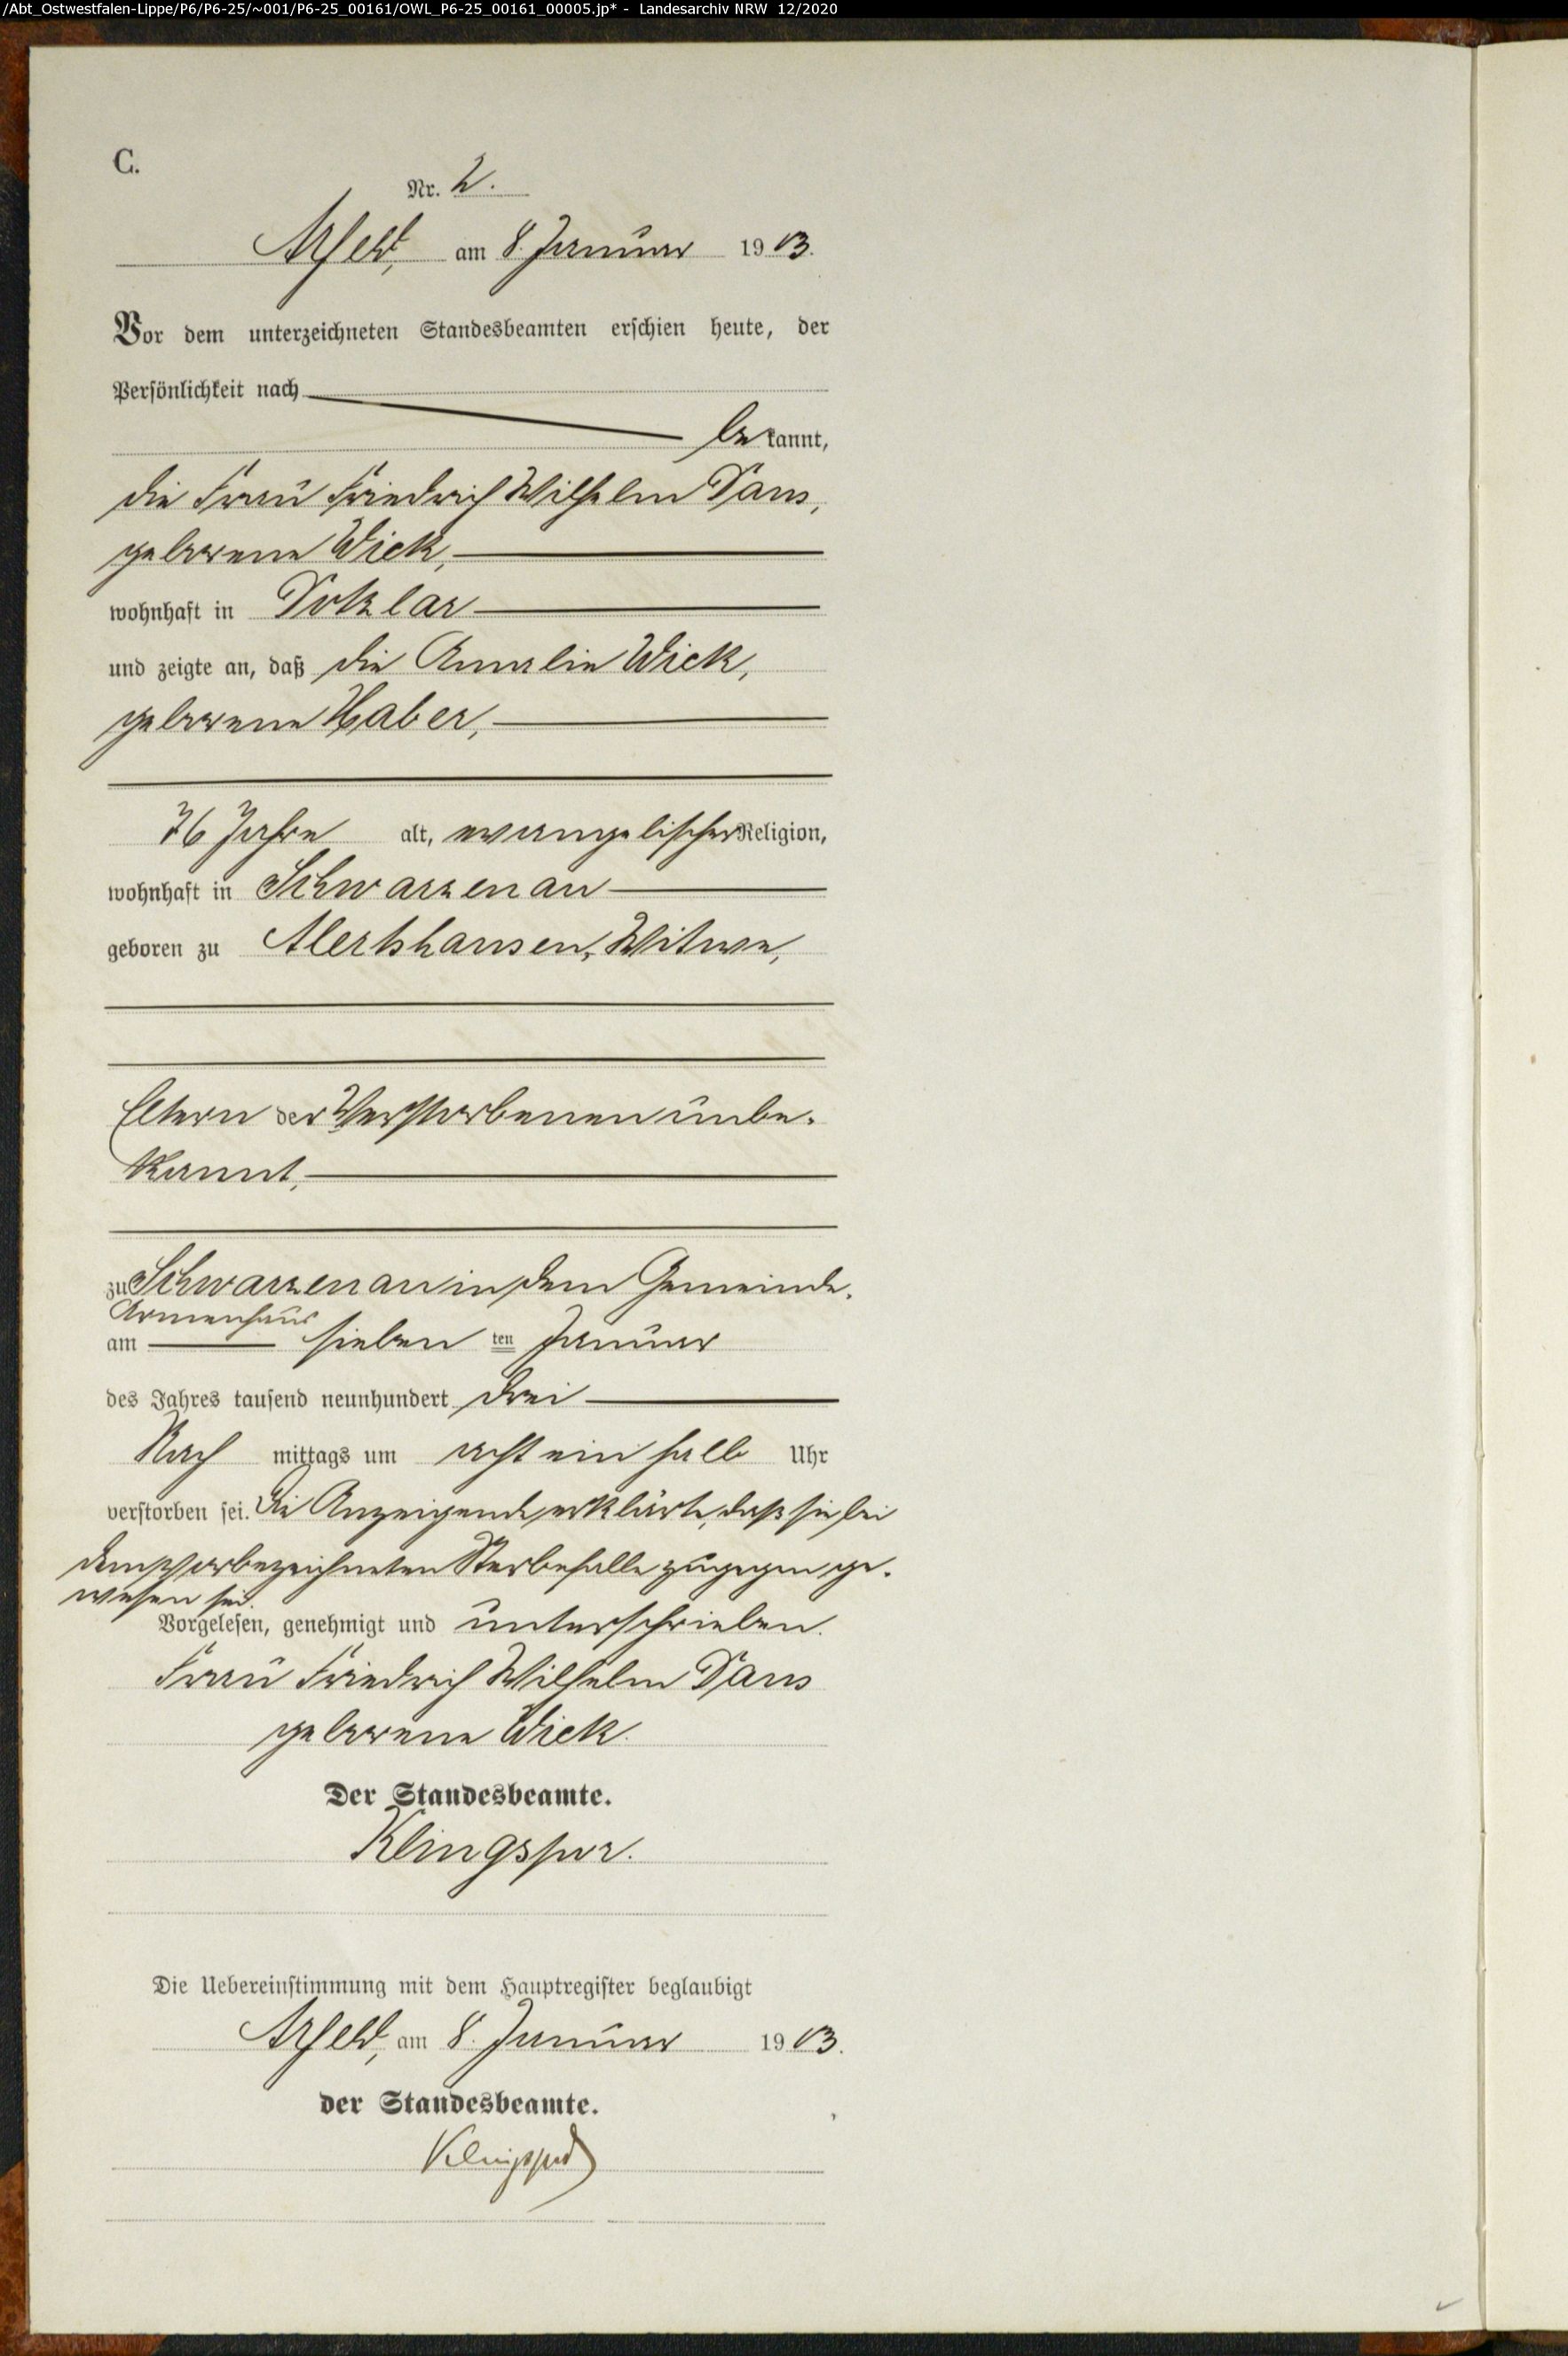 /Abt_Ostwestfalen-Lippe/P6/P6-25/~001/P6-25_00161/OWL_P6-25_00161_00005.jp* - Landesarchiv NRW 12/2020
C.
Nr. 2.
Arfeld, am 8. Januar 1903.
Vor dem unterzeichneten Standesbeamten erschien heute, der
Persönlichkeit nach
bekannt,
die Frau Friedrich Wilhelm Paus,
geborene Wick,
wohnhaft in Dotzlar
und zeigte an, daß die Amalie Wick,
geborene Haber,
76 Jahre alt, evangelischer Religion,
wohnhaft in Schwarzenau
geboren zu Alertshausen, Witwe,
Eltern der Verstorbenen unbe-
kannt,
zu Schwarzenau in dem Gemeinde-
Armenhaus
am sieben ten Januar
des Jahres tausend neunhundert drei
Nach mittags um acht ein halb Uhr
verstorben sei. Die Anzeigende erklärte, daß sie bei
dem vorbezeichneten Sterbefalle zugegen ge-
wesen sei.
Vorgelesen, genehmigt und unterschrieben.
Frau Friedrich Wilhelm Paus
geborene Wick.
Der Standesbeamte.
Klingspor.
Die Uebereinstimmung mit dem Hauptregister beglaubigt
Arfeld, am 8. Januar 1903.
der Standesbeamte.
Klingspor